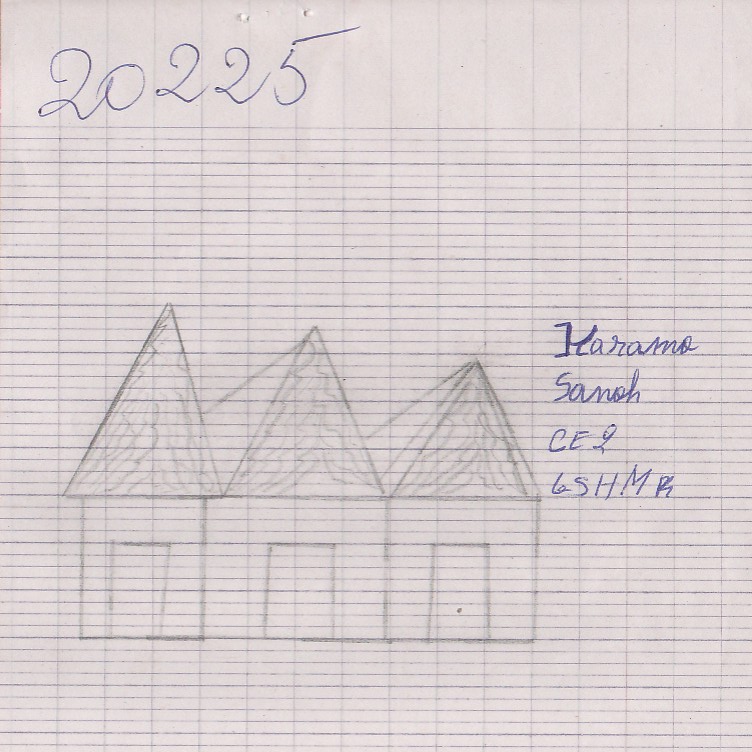 20225
Karamo
Sanoh
CE2
GSHMK